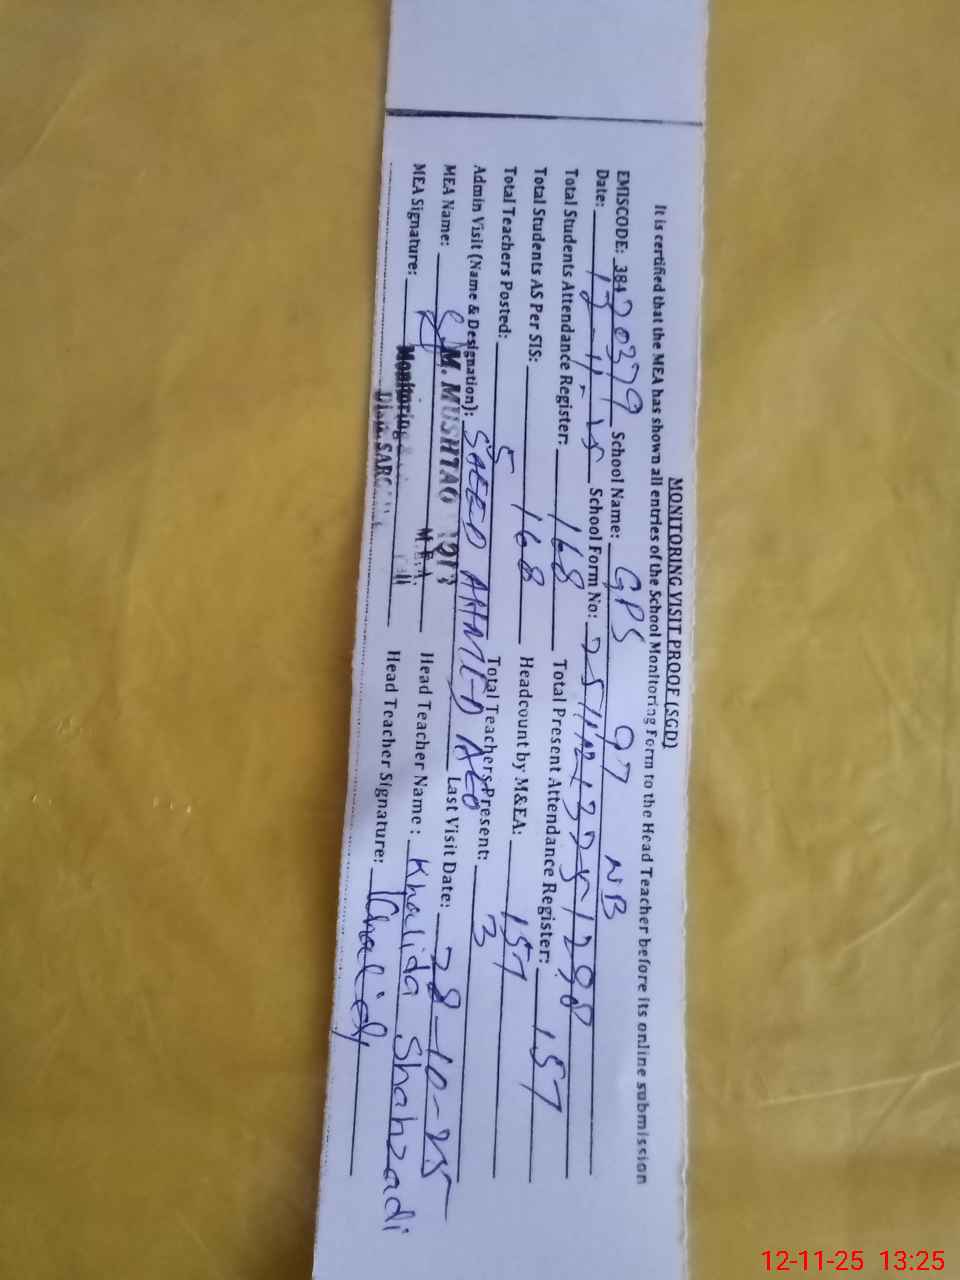 MONITORING VISIT PROOF (SGD)
It is certified that the MEA has shown all entries of the School Monitoring Form to the Head Teacher before its online submission
EMISCODE: 38470379 School Name: GPS 97 NB
Date: 12-11-25 School Form No:
Total Students Attendance Register: 168 Total Present Attendance Register: 157
Total Students AS Per SIS: 168 Headcount by M&EA: 157
Total Teachers Posted: 5 Total Teachers Present: 3
Admin Visit (Name & Designation): SAEED AHMED AEO Last Visit Date: 28-10-25
MEA Name: M. MUSHTAQ Head Teacher Name: Khalida Shahzadi
MEA Signature: Monitoring & M.E.A. Head Teacher Signature: Khalida
Distt. SARG
12-11-25 13:25